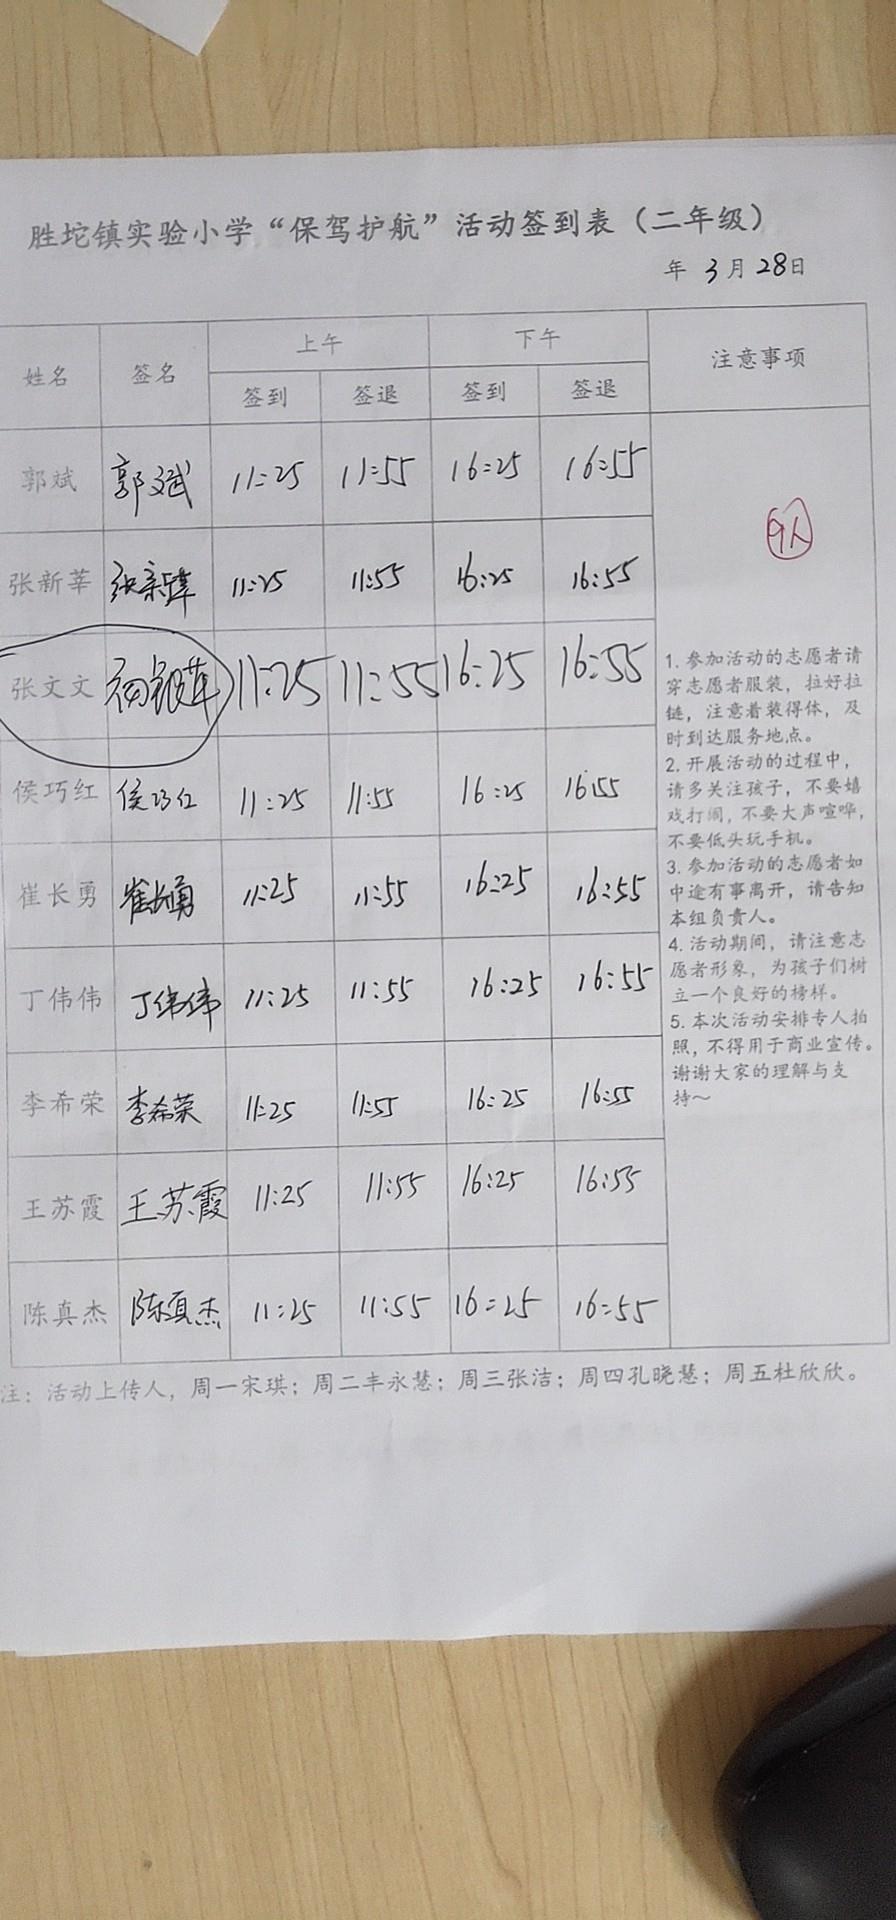 胜坨镇实验小学“保驾护航”活动签到表（二年级）
年 3月28日
姓名 签名 上午 下午 注意事项
签到 签退 签到 签退
郭斌 郭斌 11:25 11:55 16:25 16:55
9人
张新莘 张新莘 11:25 11:55 16:25 16:55
张文文 11:25 11:55 16:25 16:55
侯巧红 侯巧红 11:25 11:55 16:25 16:55
崔长勇 崔长勇 11:25 11:55 16:25 16:55
丁伟伟 丁伟伟 11:25 11:55 16:25 16:55
李希荣 李希荣 11:25 11:55 16:25 16:55
王苏霞 王苏霞 11:25 11:55 16:25 16:55
陈真杰 陈真杰 11:25 11:55 16:25 16:55
1. 参加活动的志愿者请
穿志愿者服装，拉好拉
链，注意着装得体，及
时到达服务地点。
2. 开展活动的过程中，
请多关注孩子，不要嬉
戏打闹，不要大声喧哗，
不要低头玩手机。
3. 参加活动的志愿者如
中途有事离开，请告知
本组负责人。
4. 活动期间，请注意志
愿者形象，为孩子们树
立一个良好的榜样。
5. 本次活动安排专人拍
照，不得用于商业宣传。
谢谢大家的理解与支
持～
注：活动上传人，周一宋琪；周二丰永慧；周三张洁；周四孔晓慧；周五杜欣欣。